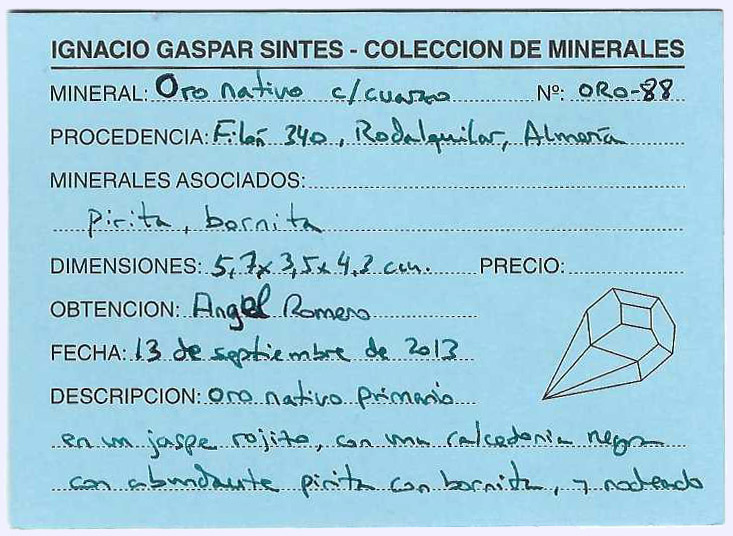 IGNACIO GASPAR SINTES - COLECCION DE MINERALES
MINERAL: Oro nativo c/cuarzo Nº: ORO-88
PROCEDENCIA: Filón 340, Rodalquilar, Almería
MINERALES ASOCIADOS:
pirita, bornita
DIMENSIONES: 5,7x3,5x4,3 cm. PRECIO:
OBTENCION: Angel Romero
FECHA: 13 de septiembre de 2013
DESCRIPCION: Oro nativo primario
en un jaspe rojito, con una calcedonia negra
con abundante pirita con bornita, y rodeado